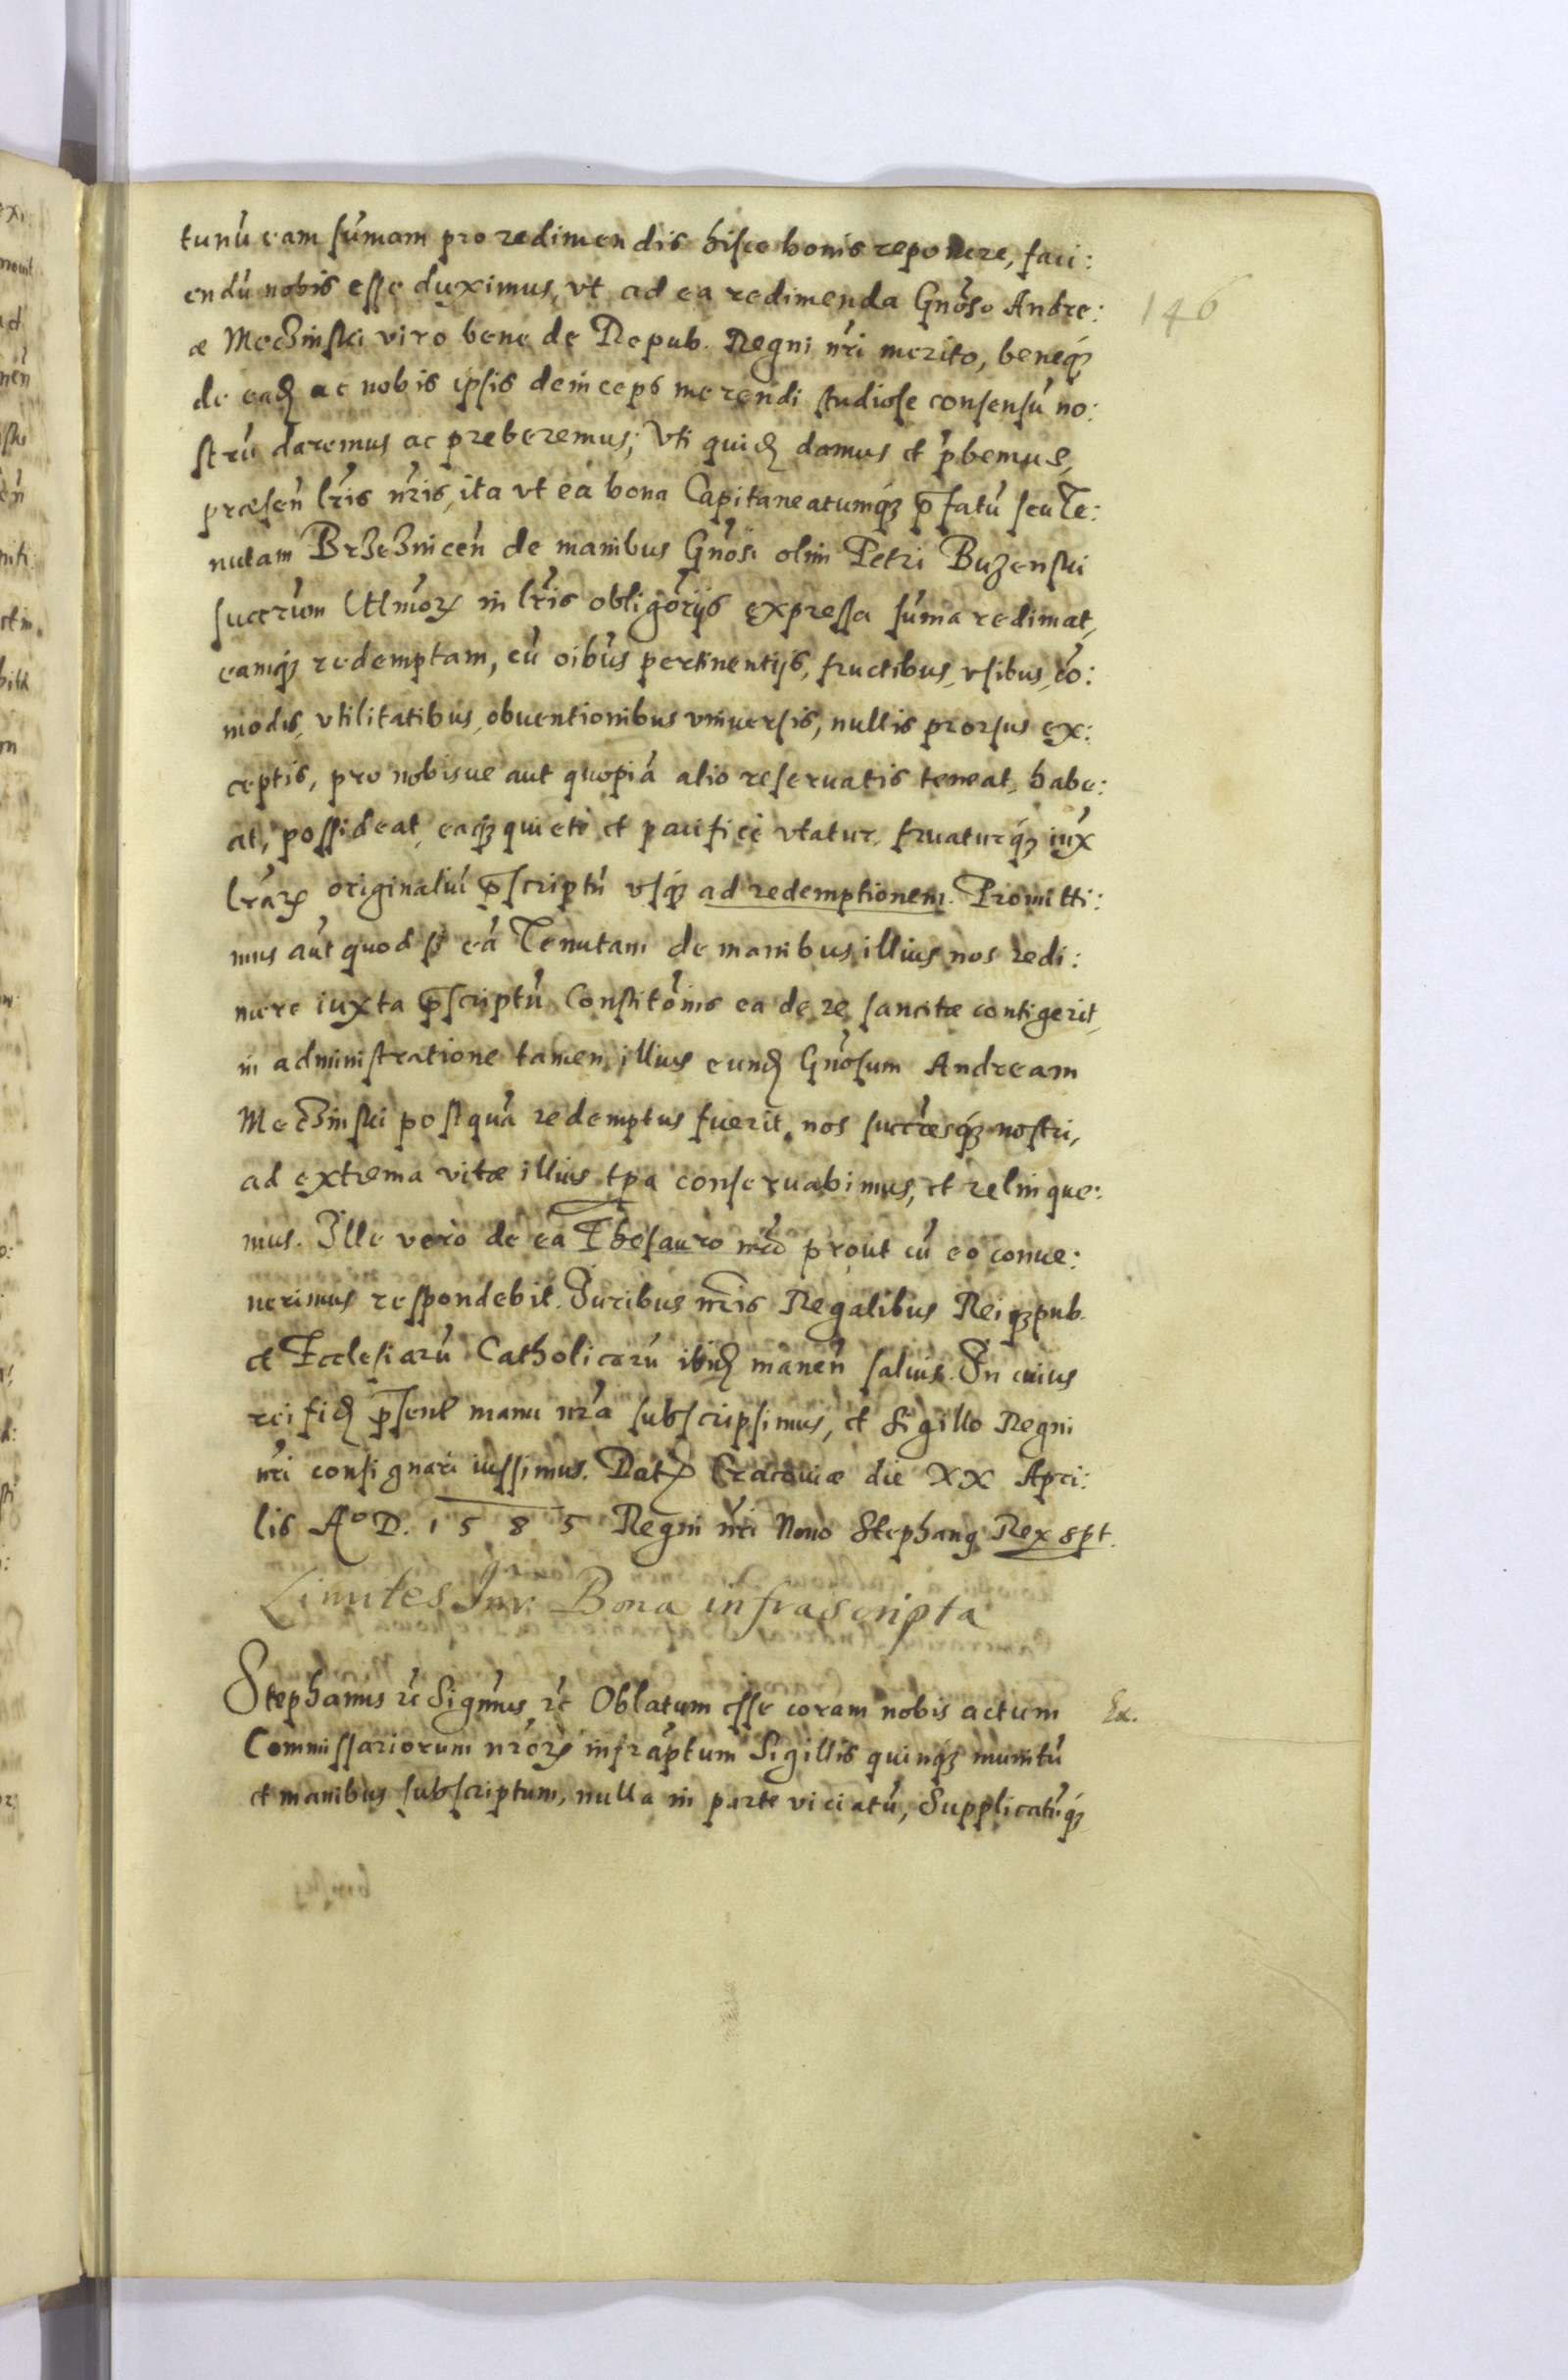 tunũ eam sum̃am pro redimendis hisce bonis reponere, faci:
endũ nobis esse duximus, vt ad ea redimenda Gñoso Andre: 146
æ Meczinski viro bene de Repub. Regni nr̃i merito, beneq́
de eadẽ ac nobis ipsis deinceps merendi studiose consensũ no:
strũ daremus ac preberemus; Vti quidẽ damus et p̃bemus,
præseñ lr̃is nr̃is, ita vt ea bona Capitaneatumq́ p̃fatũ seu Te:
nutam Brzezniceñ de manibus Gñosi olim Petri Buzenski
succr̃um Vltimoꝝ in lr̃is obligõrijs expressa sum̃a redimat,
eamq́ redemptam, cũ oĩbus pertinentijs, fructibus, vsibus, cõ:
modis, vtilitatibus, obuentionibus vniuersis, nullis prorsus ex:
ceptis, pro nobisue aut quopiã alio reseruatis teneat, habe:
at, possideat, eaq́ quietè et pacificè vtatur, fruaturq́ iux̃
lr̃aꝝ originaliũ p̃scriptũ vsq́ ad redemptionem. Promitti:
mus aũt quod si eã Tenutam de manibus illius nos redi:
mere iuxta p̃scriptũ Constitõnis ea de re sancitæ contigerit,
in administratione tamen illius eundẽ Gñosum Andream
Meczinski postquã redemptus fuerit, nos succr̃esq́ nostri,
ad extrema vitæ illius tp̃a conseruabimus, et relinque:
mus. Ille vero de ea Thesauro nr̃o prout cũ eo conue:
nerimus respondebit. Iuribus nr̃is Regalibus Reiq́pub.
et Ecclesiarũ Catholicarũ ibidẽ maneñ saluis. In cuius
rei fidẽ p̃sent manu nr̃a subscripsimus, et Sigillo Regni
nr̃i consignari iussimus. Datꝭ Cracouiæ die XX Apri:
lis Aº D. 1585 Regni nr̃i Nono Stephanꝰ Rex spt.
Limites Inr̃ Bona infrascripta
Stephanus rc̃ Sigñus rc̃ Oblatum esse coram nobis actum Ex.
Commissariorum nr̃oꝝ infrãptum Sigillis quinq́ munitũ
et manibus subscriptum, nulla in parte viciatũ, Supplicatũq́